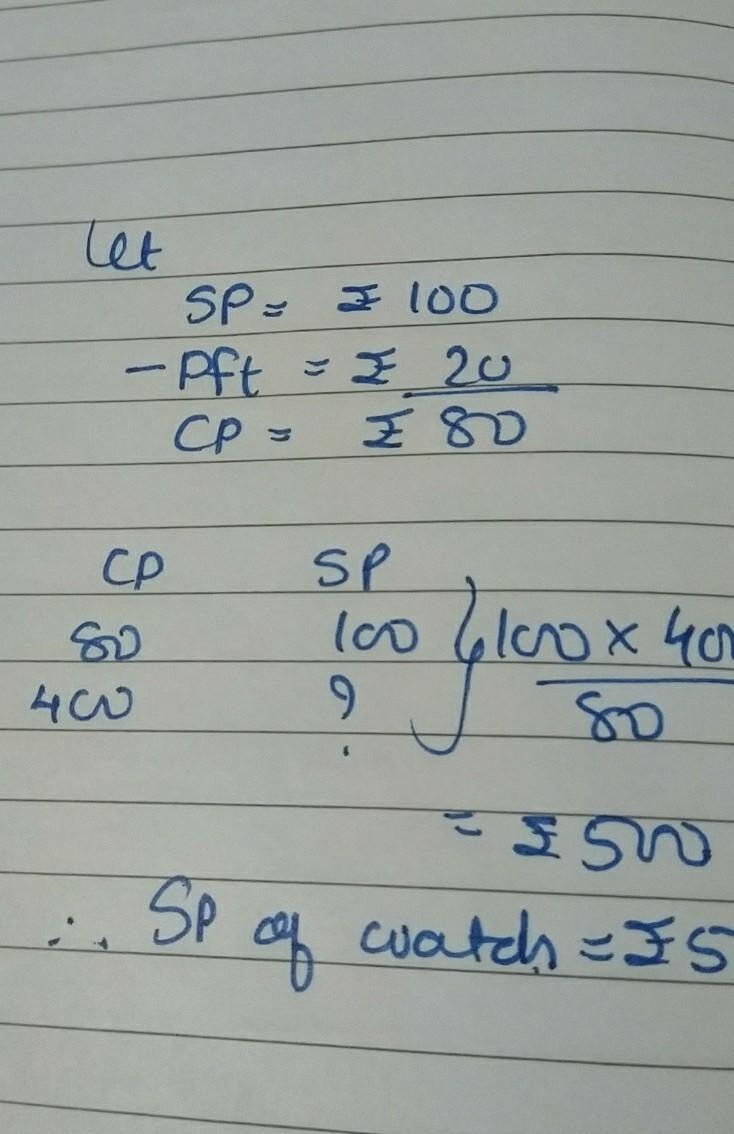 Let
SP = ₹ 100
- Pft = ₹ 20
CP = ₹ 80
CP SP
80 100 } 100 × 40
400 ? 80
= ₹ 500
∴ SP of watch = ₹5